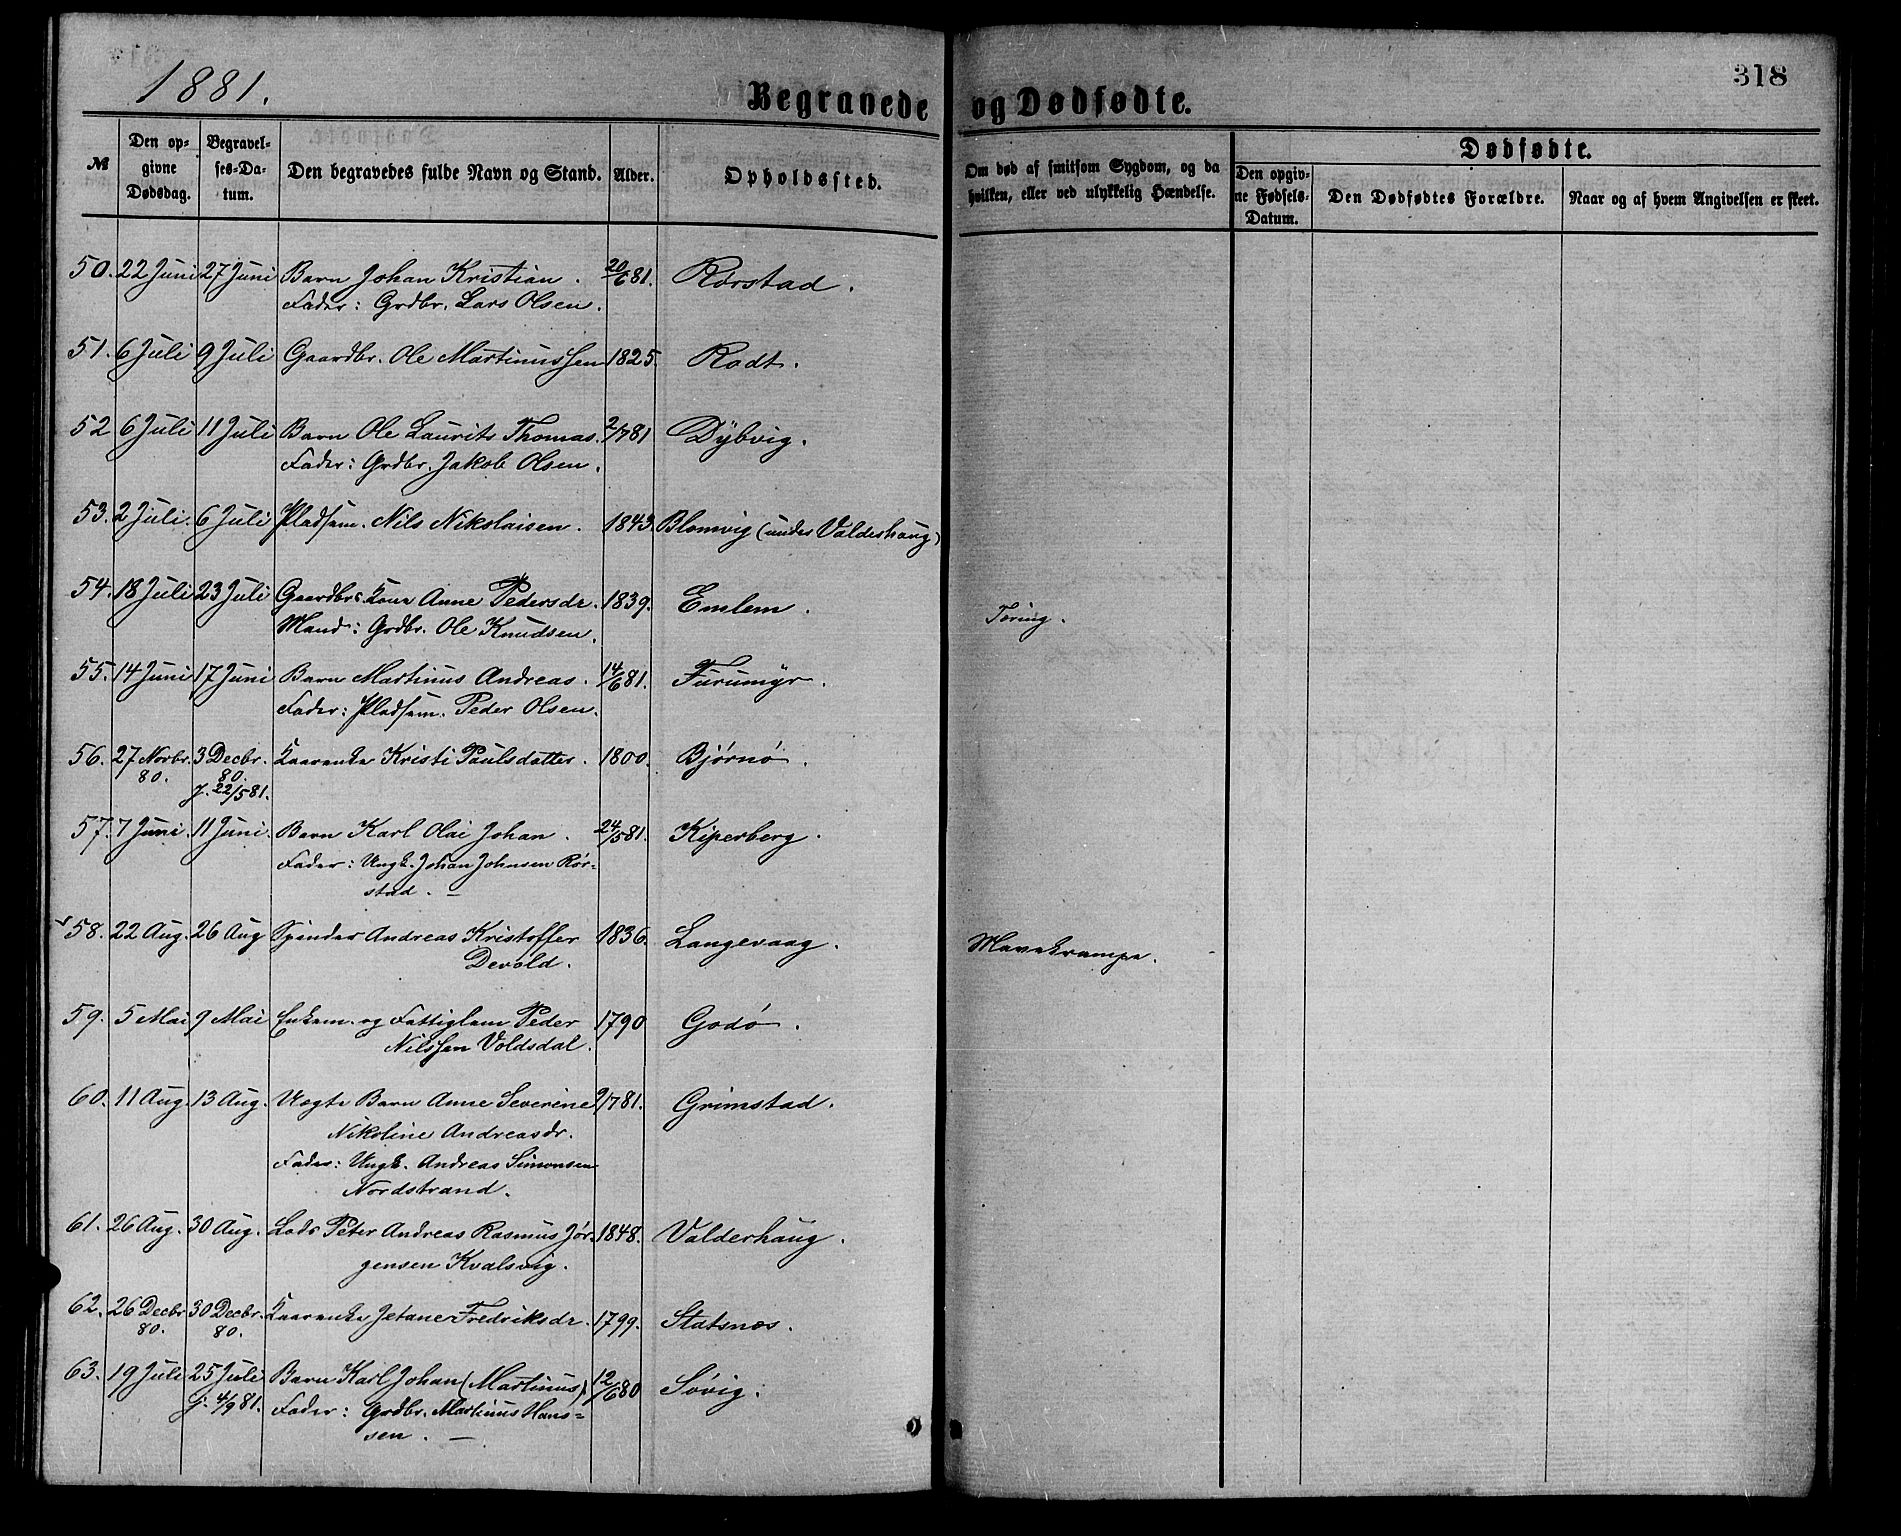 1881.
318
Begravede og Dødfødte.
№
Den opgivne Dødsdag.
Begravelses-Datum.
Den begravedes fulde Navn og Stand.
Alder.
Opholdssted.
Om død af smitsom Sygdom, og da hvilken, eller ved ulykkelig Hændelse.
Dødfødte.
Den opgivne Fødsels-Datum.
Den Dødfødtes Forældre.
Naar og af hvem Angivelsen er skeet.
50. 22 Juni 27 Juni Barn Johan Kristian. 20/6 81. Rørstad.
Fader: Grdbr. Lars Olsen.
51. 6 Juli 9 Juli Gaardbr. Ole Martinussen 1825. Rødt.
52 6 Juli 11 Juli Barn Ole Laurits Thomas. 2/7 81 Dybvig.
Fader: Grdbr. Jakob Olsen.
53. 2 Juli. 6 Juli Pladsem. Nils Nikolaisen. 1843. Blomvig (under Valdeshaug)
54. 18 Juli 23 Juli Gaardbrs. Kone Anne Pedersdr. 1839. Emlem. Tæring.
Mand: Grdbr. Ole Knudsen.
55. 14 Juni 17 Juni Barn Martinus Andreas. 14/6 81. Furumyr.
Fader: Pladsem. Peder Olsen.
56. 27 Novbr. 3 Decbr. Kaarenke Kristi Paulsdatter. 1800. Bjørnø.
80. 80.
j. 22/5 81.
57. 7 Juni. 11 Juni. Barn Karl Olai Johan. 24/5 81. Kiperberg.
Fader: Ungk. Johan Johnsen Rør-
stad. —
58. 22 Aug. 26 Aug Spinder Andreas Kristoffer 1836. Langevaag. Mavekrampe.
Devold.
59. 5 Mai 9 Mai Enkem. og Fattiglem Peder 1790 Godø.
Nilssen Voldsdal.
60. 11 Aug. 13 Aug. Uægte Barn Anne Severine 9/7 81. Grimstad.
Nikoline Andreasdr.
Fader: Ungk. Andreas Simonsen
Nordstrand.
61. 26 Aug. 30 Aug. Lods Peter Andreas Rasmus Jør- 1848. Valderhaug.
gensen Kvalsvig.
62. 26 Decbr 30 Decbr. Kaarenke Jetane Fredriksdr. 1799. Statsnes.
80. 80.
63. 19 Juli 25 Juli Barn Karl Johan (Martinus) 12/6 80 Søvig.
j. 4/9 81. Fader: Grdbr. Martinus Hans-
sen. —